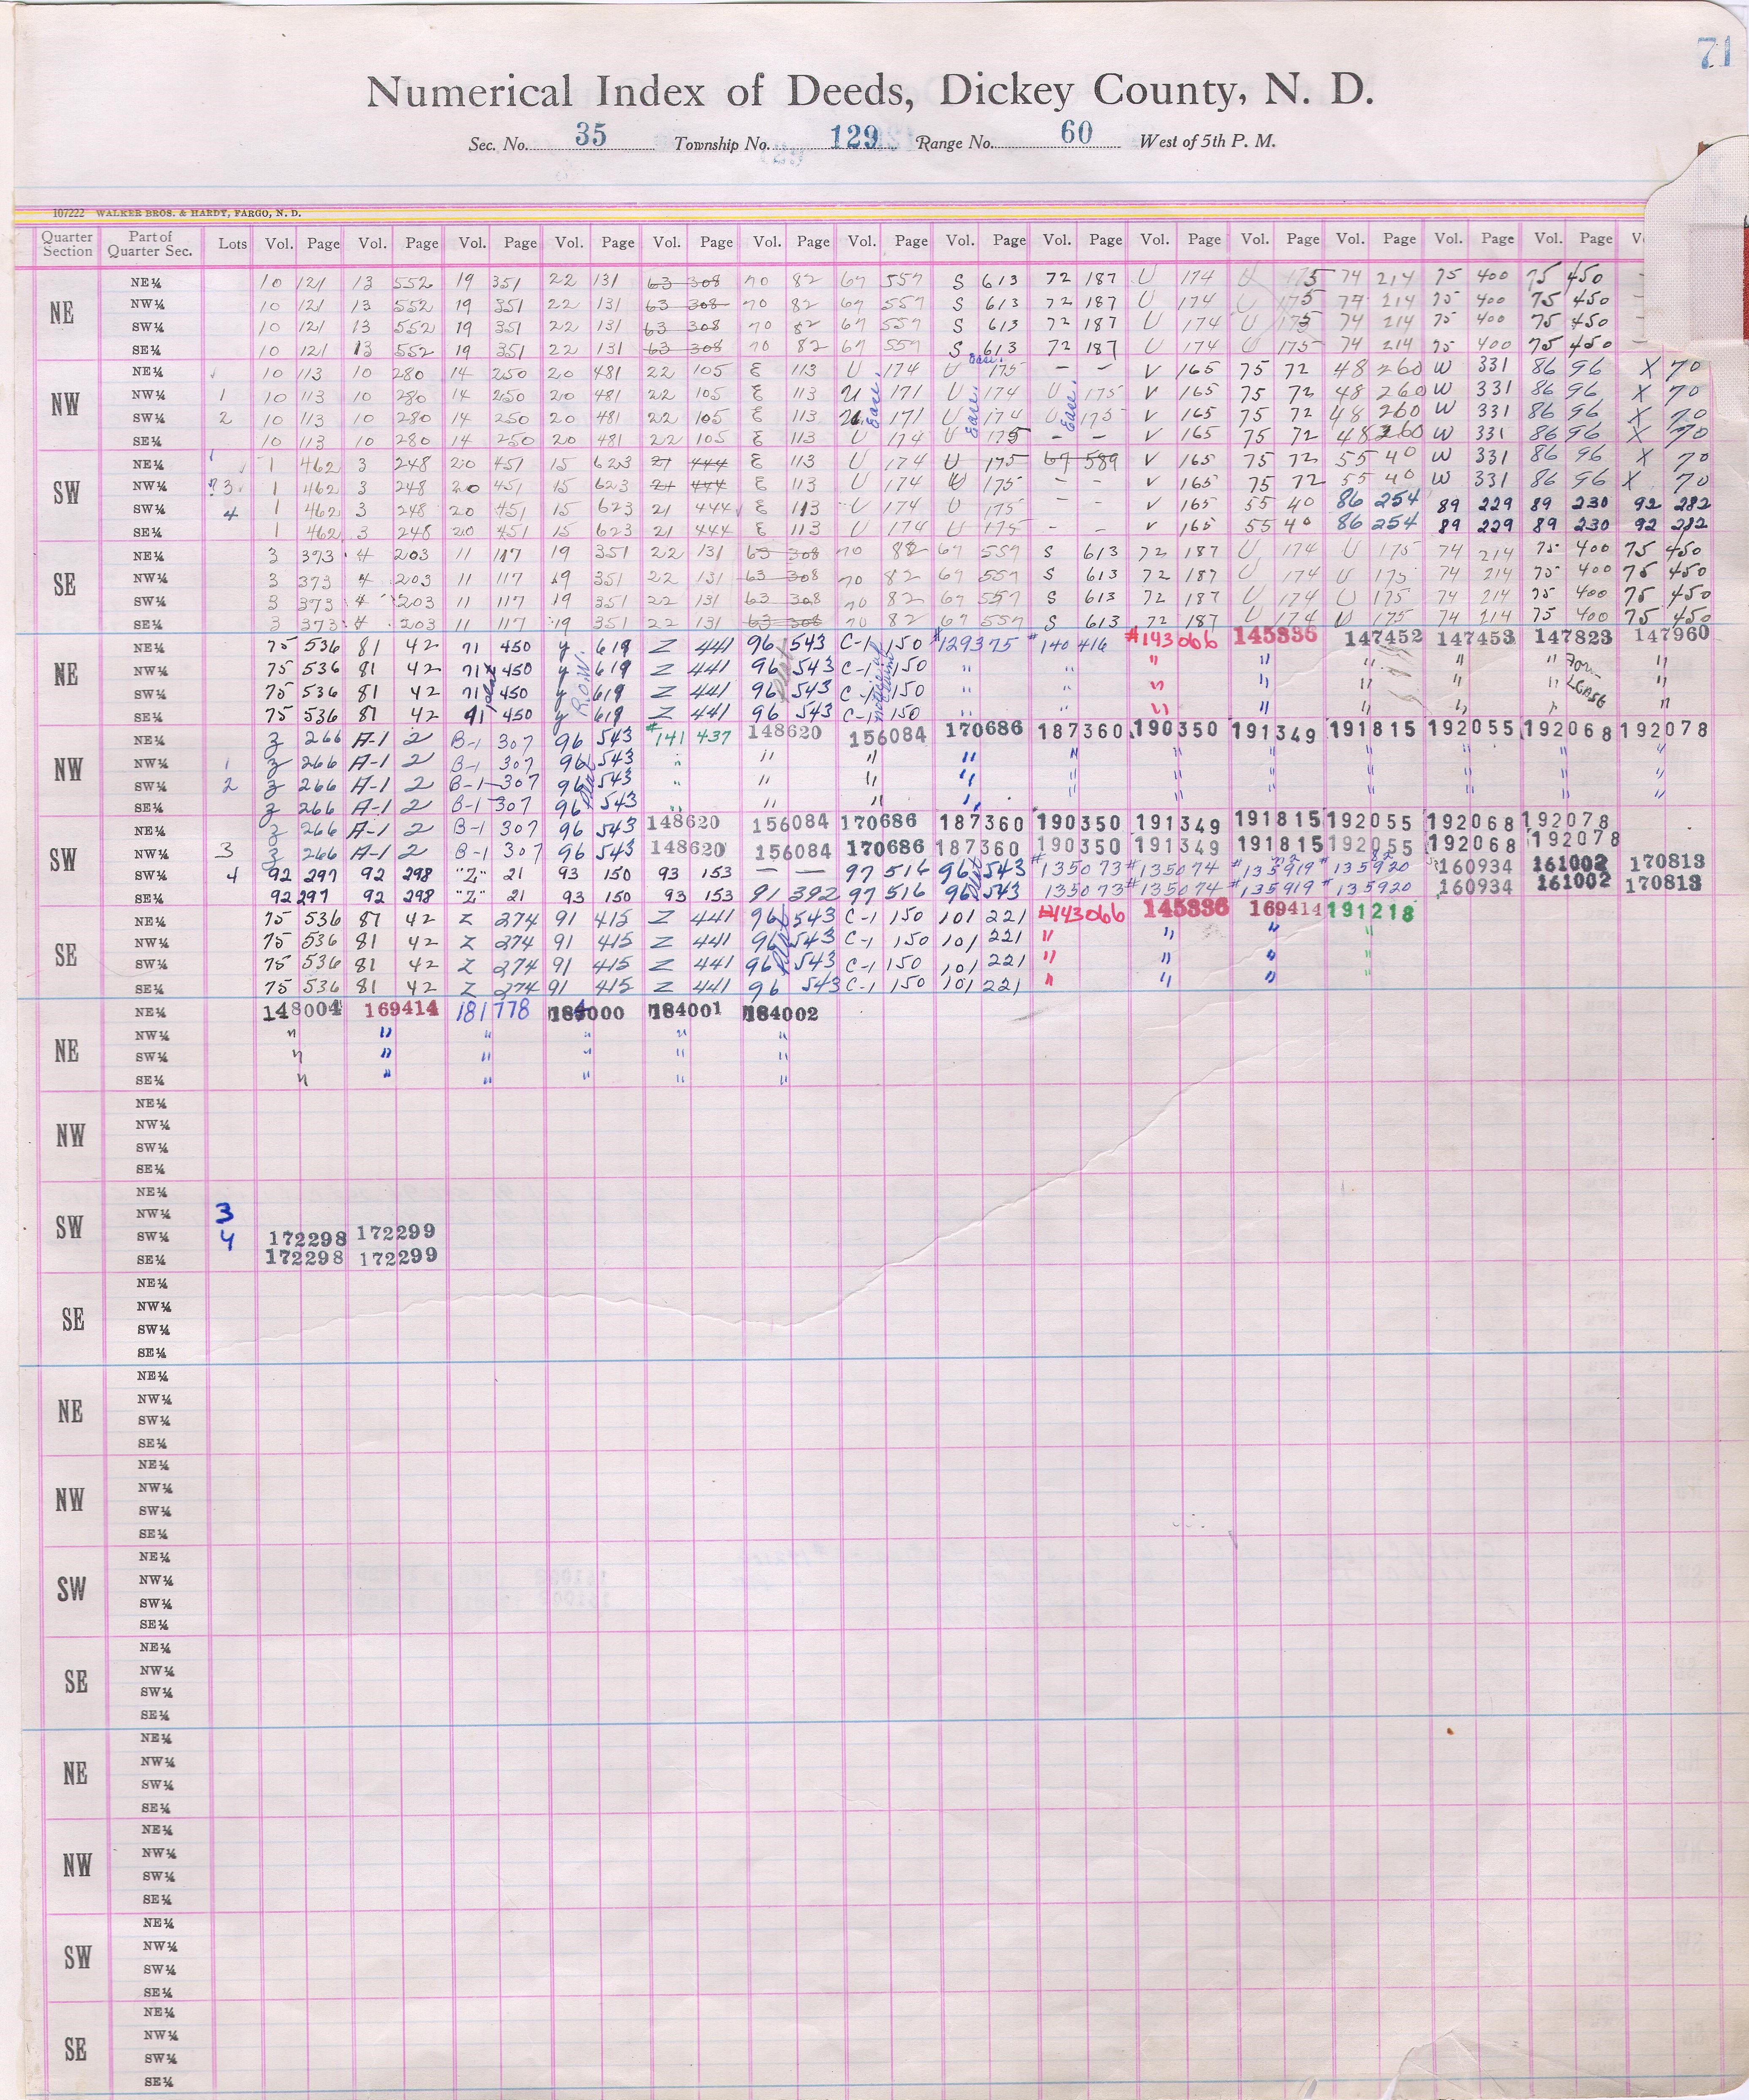 71
Numerical Index of Deeds, Dickey County, N. D.
Sec. No. 35 Township No. 129 Range No. 60 West of 5th P. M.
107222 WALKER BROS. & HARDY, FARGO, N. D.
Quarter Section Part of Quarter Sec. Lots Vol. Page Vol. Page Vol. Page Vol. Page Vol. Page Vol. Page Vol. Page Vol. Page Vol. Page Vol. Page Vol. Page Vol. Page Vol. Page Vol. Page V
NE
NE¼ 10 121 13 552 19 351 22 131 63 308 70 82 67 557 S 613 72 187 U 174 U 175 74 214 75 400 75 450
NW¼ 10 121 13 552 19 351 22 131 63 308 70 82 67 557 S 613 72 187 U 174 U 175 74 214 75 400 75 450
SW¼ 10 121 13 552 19 351 22 131 63 308 70 82 67 557 S 613 72 187 U 174 U 175 74 214 75 400 75 450
SE¼ 10 121 13 552 19 351 22 131 63 308 70 82 67 557 S 613 72 187 U 174 U 175 74 214 75 400 75 450
NW
NE¼ 10 113 10 280 14 250 20 481 22 105 E 113 U 174 U 175 – – V 165 75 72 48 260 W 331 86 96 X 70
NW¼ 1 10 113 10 280 14 250 20 481 22 105 E 113 U 171 U 174 U 175 V 165 75 72 48 260 W 331 86 96 X 70
SW¼ 2 10 113 10 280 14 250 20 481 22 105 E 113 U 171 U 174 U 175 V 165 75 72 48 260 W 331 86 96 X 70
SE¼ 10 113 10 280 14 250 20 481 22 105 E 113 U 174 U 175 – – V 165 75 72 48 260 W 331 86 96 X 70
Ease. Ease. Ease. Ease.
SW
NE¼ 1 462 3 248 20 451 15 623 21 444 E 113 U 174 U 175 67 589 V 165 75 72 55 40 W 331 86 96 X 70
NW¼ 3 1 462 3 248 20 451 15 623 21 444 E 113 U 174 U 175 – – V 165 75 72 55 40 W 331 86 96 X 70
SW¼ 4 1 462 3 248 20 451 15 623 21 444 E 113 U 174 U 175 – – V 165 55 40 86 254 89 229 89 230 92 282
SE¼ 1 462 3 248 20 451 15 623 21 444 E 113 U 174 U 175 – – V 165 55 40 86 254 89 229 89 230 92 282
SE
NE¼ 3 373 4 203 11 117 19 351 22 131 63 308 70 82 67 557 S 613 72 187 U 174 U 175 74 214 75 400 75 450
NW¼ 3 373 4 203 11 117 19 351 22 131 63 308 70 82 67 557 S 613 72 187 U 174 U 175 74 214 75 400 75 450
SW¼ 3 373 4 203 11 117 19 351 22 131 63 308 70 82 67 557 S 613 72 187 U 174 U 175 74 214 75 400 75 450
SE¼ 3 373 4 203 11 117 19 351 22 131 63 308 70 82 67 557 S 613 72 187 U 174 U 175 74 214 75 400 75 450
NE
NE¼ 75 536 81 42 71 450 y 619 Z 441 96 543 C-1 150 #129375 #140 416 #143066 145336 147452 147453 147823 147960
NW¼ 75 536 81 42 71 450 y 619 Z 441 96 543 C-1 150 " " " " " " " "
SW¼ 75 536 81 42 71 450 y 619 Z 441 96 543 C-1 150 " " " " " " " "
SE¼ 75 536 81 42 91 450 y 619 Z 441 96 543 C-1 150 " " " " " " " "
R.O.W. Plat
NW
NE¼ z 266 A-1 2 B-1 307 96 543 #141 437 148620 156084 170686 187360 190350 191349 191815 192055 192068 192078
NW¼ 1 z 266 A-1 2 B-1 307 96 543 " " " " " " " " " " "
SW¼ 2 z 266 A-1 2 B-1 307 96 543 " " " " " " " " " " "
SE¼ z 266 A-1 2 B-1 307 96 543 " " " "
SW
NE¼ z 266 A-1 2 B-1 307 96 543 148620 156084 170686 187360 190350 191349 191815 192055 192068 192078
NW¼ 3 z 266 A-1 2 B-1 307 96 543 148620 156084 170686 187360 190350 191349 191815 192055 192068 192078
SW¼ 4 92 297 92 298 "Z" 21 93 150 93 153 – – 97 516 96 543 #135073 #135074 #135919 #135920 160934 161002 170813
SE¼ 92 297 92 298 "Z" 21 93 150 93 153 91 392 97 516 96 543 135073 #135074 #135919 #135920 160934 161002 170813
SE
NE¼ 75 536 81 42 Z 274 91 415 Z 441 96 543 C-1 150 101 221 #143066 145336 169414 191218
NW¼ 75 536 81 42 Z 274 91 415 Z 441 96 543 C-1 150 101 221 " " " "
SW¼ 75 536 81 42 Z 274 91 415 Z 441 96 543 C-1 150 101 221 " " " "
SE¼ 75 536 81 42 Z 274 91 415 Z 441 96 543 C-1 150 101 221 " " " "
NE
NE¼ 148004 169414 181778 184000 184001 184002
NW¼ " " " " " "
SW¼ " " " " " "
SE¼ " " " " " "
NW
NE¼
NW¼
SW¼
SE¼
SW
NE¼
NW¼ 3
SW¼ 4 172298 172299
SE¼ 172298 172299
SE
NE¼
NW¼
SW¼
SE¼
NE
NE¼
NW¼
SW¼
SE¼
NW
NE¼
NW¼
SW¼
SE¼
SW
NE¼
NW¼
SW¼
SE¼
SE
NE¼
NW¼
SW¼
SE¼
NE
NE¼
NW¼
SW¼
SE¼
NW
NE¼
NW¼
SW¼
SE¼
SW
NE¼
NW¼
SW¼
SE¼
SE
NE¼
NW¼
SW¼
SE¼